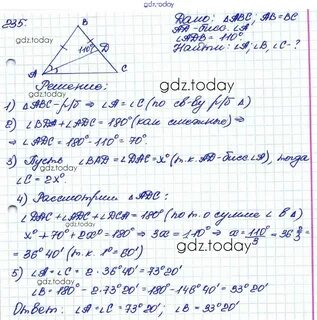 235.
gdz.today
B
110°
D
A
C
Дано: △ABC; AB=BC
AD-бисс. ∠A
∠ADB = 110°
Найти: ∠A; ∠B, ∠C - ?
gdz.today
Решение:
gdz.today
1) △ABC - р/б ⇒ ∠A = ∠C (по св-ву р/б △)
2) ∠BDA + ∠ADC = 180° (как смежные) ⇒
⇒ ∠ADC = 180° - 110° = 70°.
gdz.today
3) Пусть ∠BAD = ∠DAC = x° (т.к. AD - бисс ∠A), тогда
∠C = 2x°.
4) Рассмотрим △ADC:
gdz.today
∠DAC + ∠ADC + ∠DCA = 180° (по т. о сумме ∠ в △)
x° + 70° + 2x° = 180° ⇒ 3x = 110° ⇒ x = 110°/3 = 36 2/3 =
= 36°40' (т.к. 1° = 60')
gdz.today
5) ∠A = ∠C = 2 · 36°40' = 73°20'
∠B = 180° - 2·73°20' = 180° - 146°40' = 33°20'
Ответ: ∠A = ∠C = 73°20'; ∠B = 33°20'
gdz.today